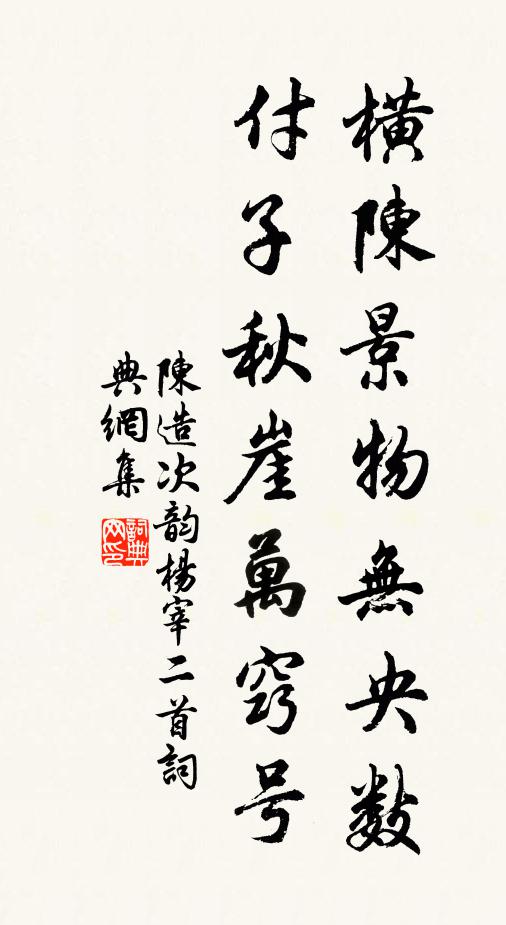 橫陳景物無央數
付子秋崖萬竅号
陳造次韵楊宰二首詞
典網集
詞典
网印